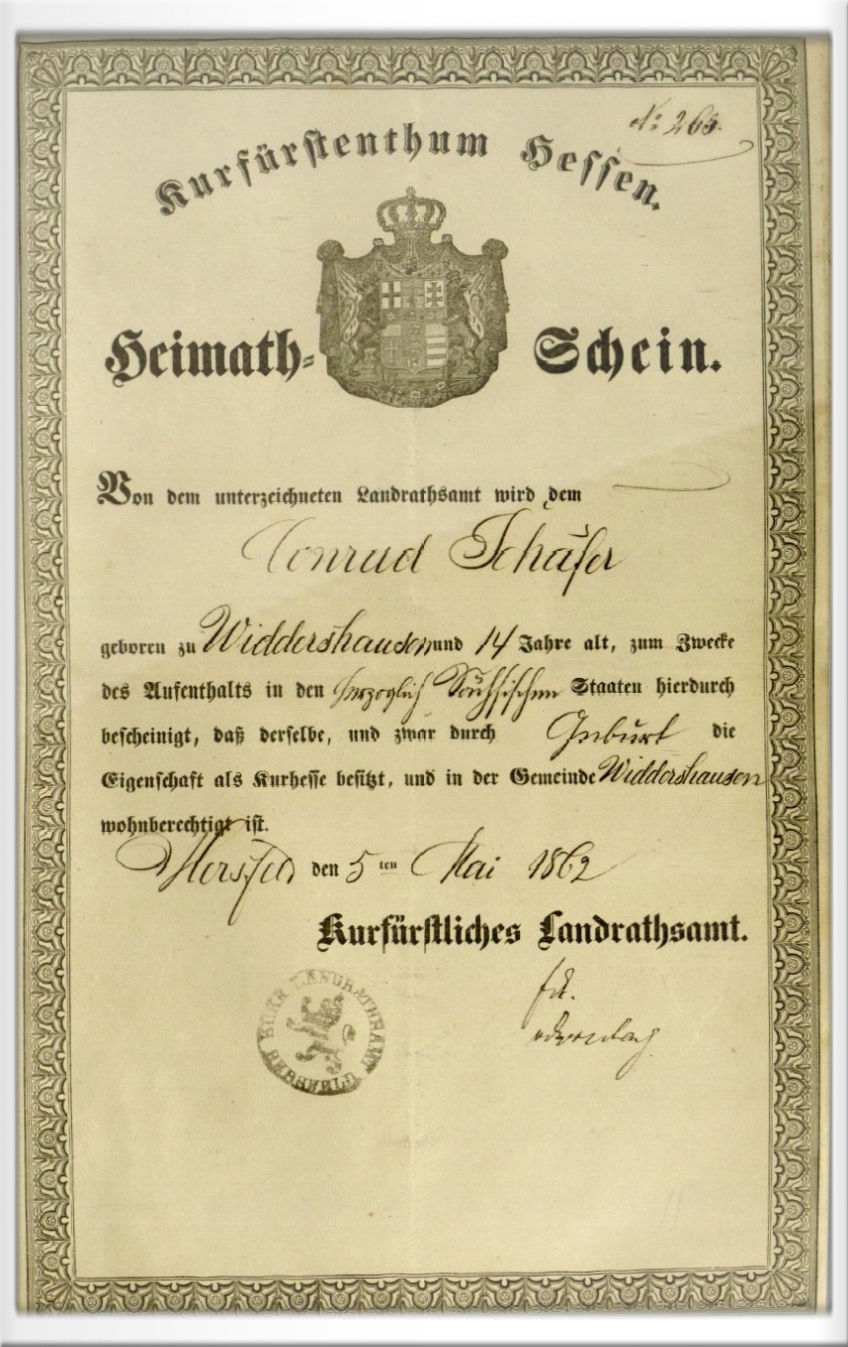 Nº 266.
Kurfürstenthum Hessen.
Heimath-Schein.
Von dem unterzeichneten Landrathsamt wird dem
Conrad Schäfer
geboren zu Widdershausen und 14 Jahre alt, zum Zwecke
des Aufenthalts in den Herzoglich Sächsischen Staaten hierdurch
bescheinigt, daß derselbe, und zwar durch Geburt die
Eigenschaft als Kurhesse besitzt, und in der Gemeinde Widdershausen
wohnberechtigt ist.
Hersfeld den 5ten Mai 1862
Kurfürstliches Landrathsamt.
KURH LANDRATHSAMT HERSFELD